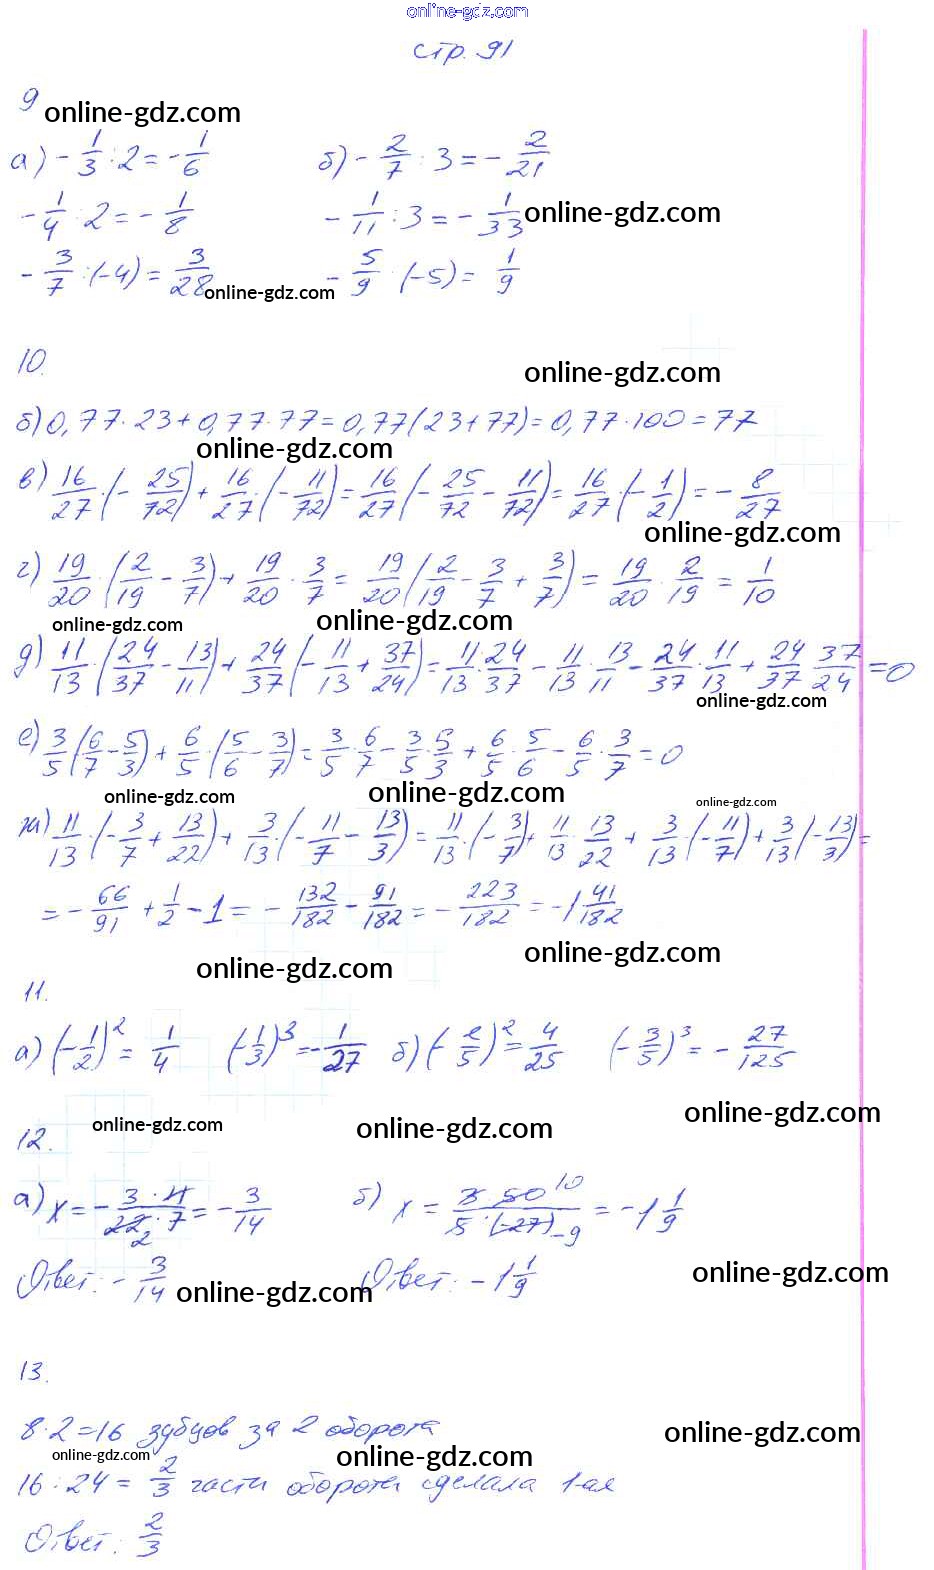 online-gdz.com
стр. 91
9 online-gdz.com
а) -1/3 : 2 = -1/6 б) -2/7 : 3 = -2/21
-1/4 : 2 = -1/8 -1/11 : 3 = -1/33 online-gdz.com
-3/7 : (-4) = 3/28 online-gdz.com -5/9 : (-5) = 1/9
10. online-gdz.com
б) 0,77·23+0,77·77=0,77(23+77)=0,77·100=77
online-gdz.com
в) 16/27·(-25/72)+16/27·(-11/72)=16/27(-25/72-11/72)=16/27·(-1/2)=-8/27
online-gdz.com
г) 19/20·(2/19-3/7)+19/20·3/7=19/20(2/19-3/7+3/7)=19/20·2/19=1/10
online-gdz.com online-gdz.com
д) 11/13·(24/37-13/11)+24/37(-11/13+37/24)=11/13·24/37-11/13·13/11-24/37·11/13+24/37·37/24=0
online-gdz.com
е) 3/5(6/7-5/3)+6/5·(5/6-3/7)=3/5·6/7-3/5·5/3+6/5·5/6-6/5·3/7=0
online-gdz.com online-gdz.com online-gdz.com
ж) 11/13·(-3/7+13/22)+3/13·(-11/7-13/3)=11/13·(-3/7)+11/13·13/22+3/13·(-11/7)+3/13·(-13/3)=
=-66/91+1/2-1=-132/182-91/182=-223/182=-1 41/182
online-gdz.com online-gdz.com
11.
а) (-1/2)²=1/4 (-1/3)³=-1/27 б) (-2/5)²=4/25 (-3/5)³=-27/125
12. online-gdz.com online-gdz.com online-gdz.com
а) x=-3·11/22·7 2=-3/14 б) x=3·50 10/5·(-27) -9=-1 1/9
Ответ: -3/14 online-gdz.com Ответ: -1 1/9 online-gdz.com
13.
8·2=16 зубцов за 2 оборота online-gdz.com
online-gdz.com online-gdz.com
16:24=2/3 части оборота сделала 1-ая
Ответ: 2/3